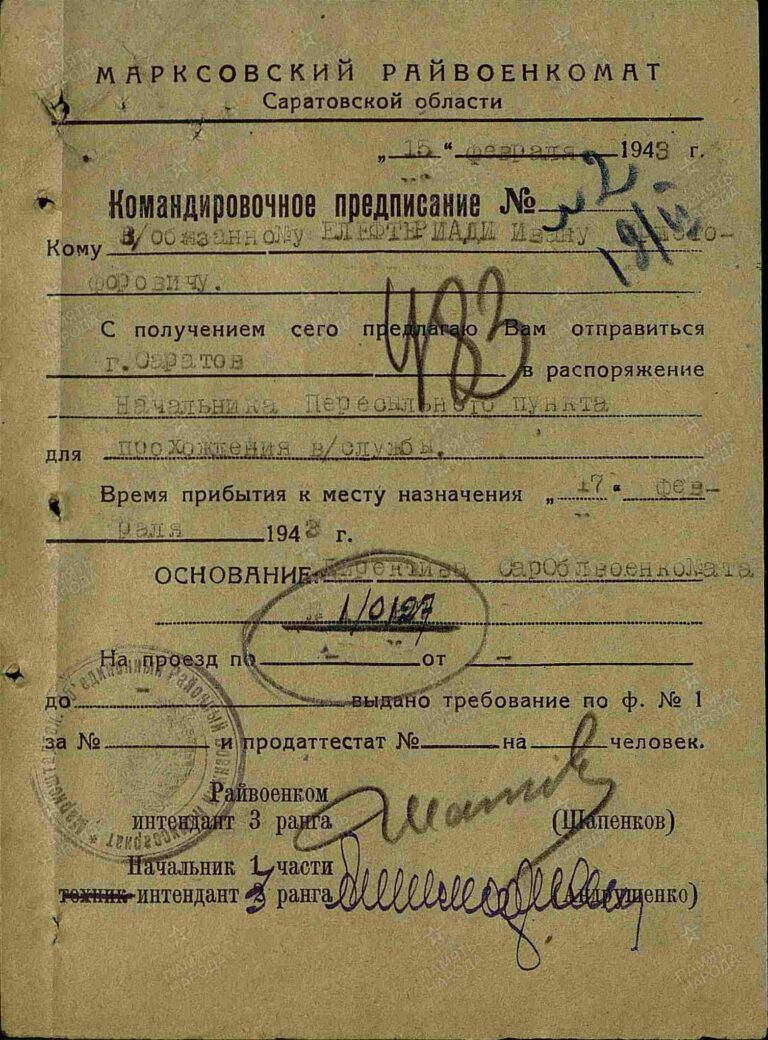 МАРКСОВСКИЙ РАЙВОЕНКОМАТ
Саратовской области
„ 15 “ февраля 1943 г.
Командировочное предписание №
19/II
Кому в/обязанному ЕЛЕФТЕРИАДИ Ивану
форовичу.
483
С получением сего предлагаю Вам отправиться
г.Саратов в распоряжение
Начальника Пересыльного пункта
для прохождения в/службы.
Время прибытия к месту назначения „ 17 “ фев-
раля 1943 г.
ОСНОВАНИЕ: Директива Саробл военкомата
1/0127
На проезд по - от -
до - выдано требование по ф. № 1
за № и продаттестат № на человек.
Райвоенком
интендант 3 ранга (Шапенков)
Начальник 1 части
техник-интендант 3 ранга (Андрущенко)
ПАМЯТЬ НАРОДА